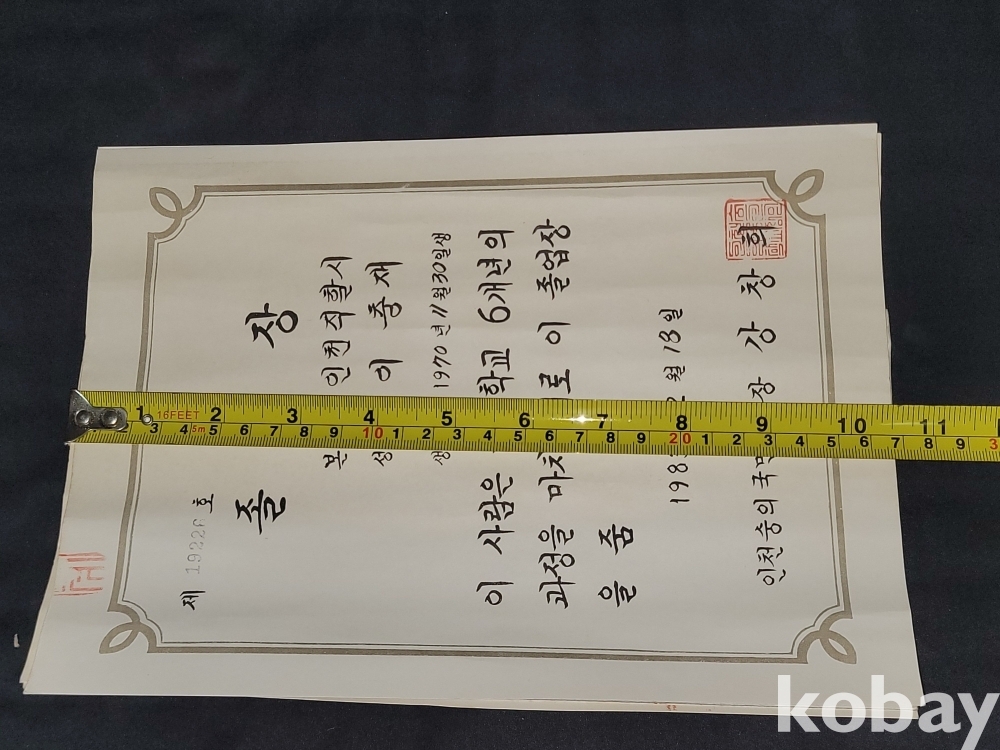 제 19226 호
졸 장
본 인천직할시
성 이중재
생 1970년 11월 30일생
이 사람은 학교 6개년의
과정을 마치 로 이 졸업장
을 줌
198 월 18일
인천숭의국민 장 강창희
1 2 3 4 5 6 7 8 9 10 11
16FEET
3 4 5m 5 6 7 8 9 10 1 2 3 4 5 6 7 8 9 20 1 2 3 4 5 6 7 8 9 3
kobay